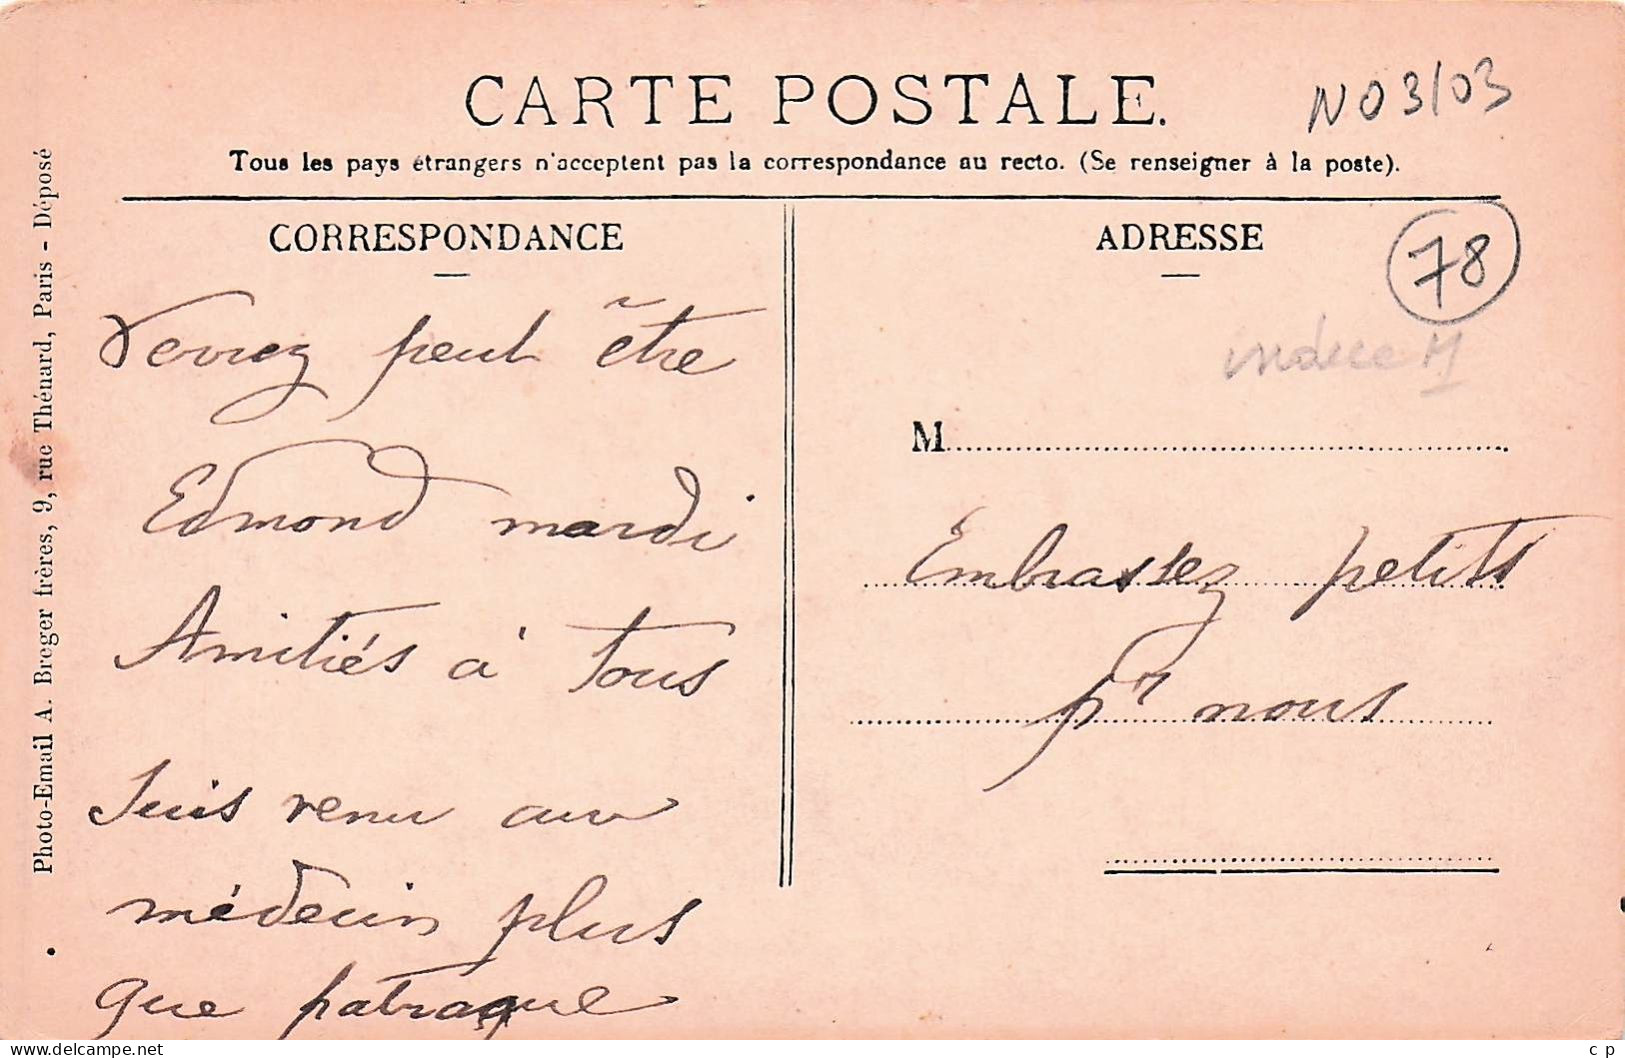 CARTE POSTALE.
NO 3/03
Tous les pays étrangers n'acceptent pas la correspondance au recto. (Se renseigner à la poste).
CORRESPONDANCE
Verrez peut être
Edmond mardi
Amitiés à tous
Suis venu au
médecin plus
que patraque
ADRESSE
78
M
Embrassez petits
pr nous
Photo-Email A. Breger frères, 9, rue Thénard, Paris - Déposé
www.delcampe.net
c p